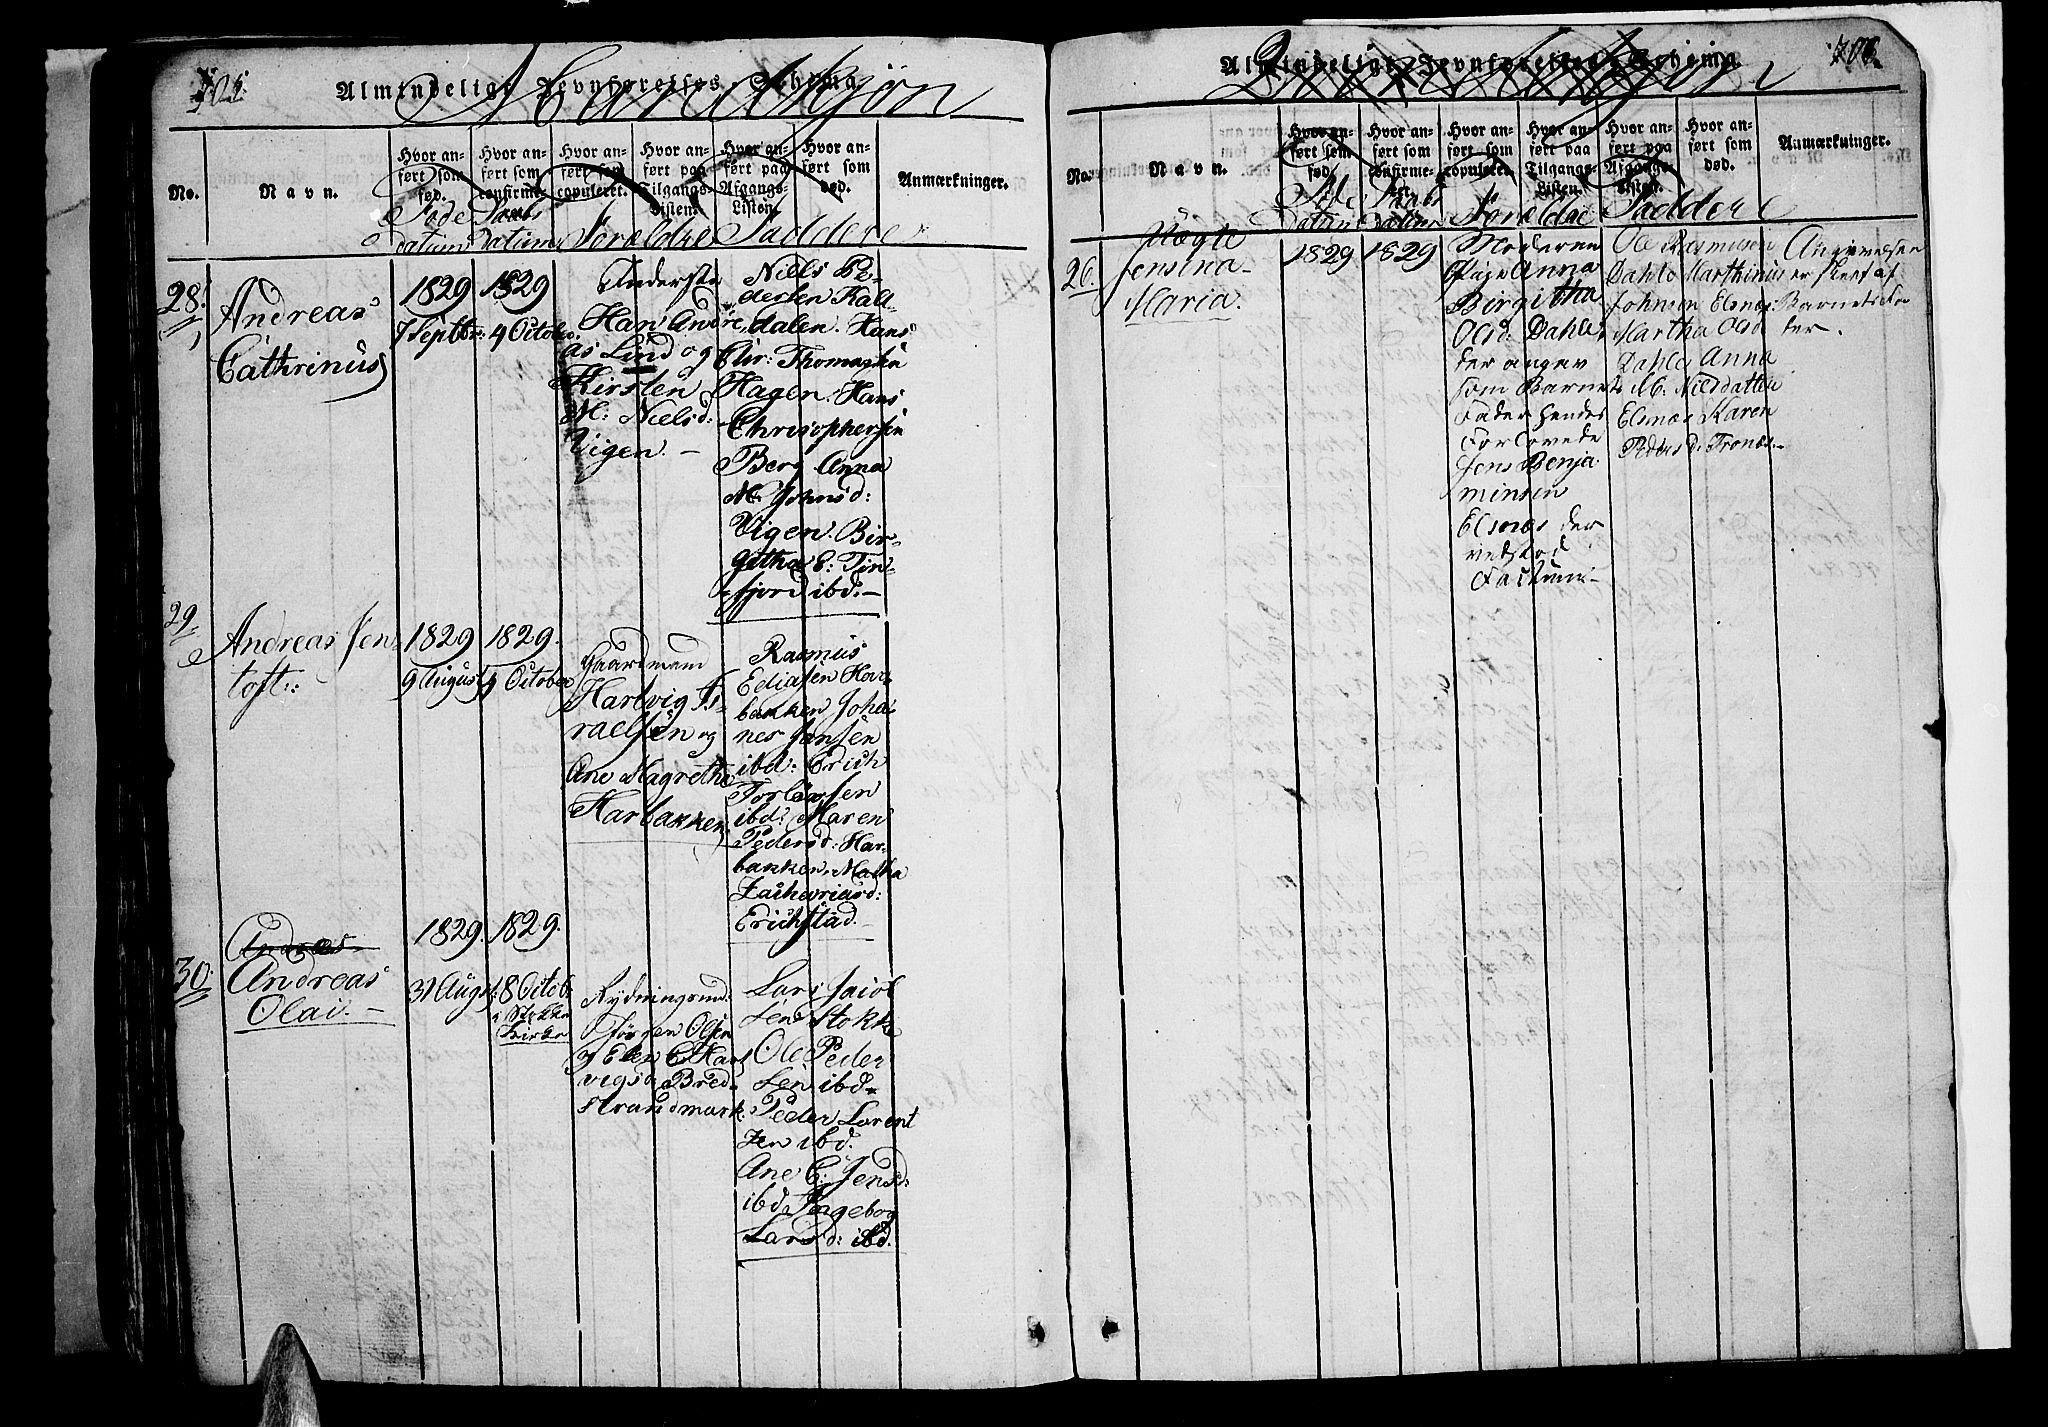 705.
Almindeligt Jevnførelses Schema
Mandkjøn
No.
Navn.
Hvor anført som fød.
Hvor anført som confirmeret.
Hvor anført som copuleret.
Hvor anført paa Tilgangs-Listen.
Hvor anført paa Afgangs-Listen.
Hvor anført som død.
Anmærkninger.
Føde
datum
Daabs
datum
Forældre
Faddere
28.
Andreas
Cathrinus
1829
7 Septbr:
1829
4 Octobr.
Han Andre
as Lind og
Kirsten
M: Nielsd:
Vigen. -
Niels Pe-
dersen Kall
dalen. Hans
Chr: Thomassen
Hagen. Hans
Christophersen
Berg Anna
M. Johnsd:
Vigen. Bir-
githa E: Fin-
fjord ibd. -
29.
Andreas Jen-
toft:
1829
9 August
1829.
4 October
Gaardmand
Hartvig Is-
raelsen og
Ane Magretha
Harbakken
Rasmus
Ediasen Har-
bakken Joha-
nes Jansen
ibd: Erich
ibd: Maren
Pedersd: Har-
bakken. Matha
Zachariasd:
Erichstad. -
30.
Andreas
Andreas
Olai. -
1829.
31 Augst
1829.
8 Octob:
i Stokke
Kirke
Rydningsmd:
Jørgen Olsen
og Elen C. Hart
vigsd. Bred-
strandmark.
Lars Jacob
sen Stokke
Ole Peder
sen ibd.
Peder Lorent
zen ibd.
Ane C: Jensd:
ibd Ingebor
Larsd: ibd.
706.
Almindeligt Jevnførelses Schema
No.
Navn.
Hvor anført som fød.
Hvor anført som confirmeret.
Hvor anført som copuleret.
Hvor anført paa Tilgangs-Listen.
Hvor anført paa Afgangs-Listen.
Hvor anført som død.
Anmærkninger.
Føde
datum
Daabs
datum
Forældre
Faddere
26.
Uægte
Jensina
Maria.
1829
1829
Moderen
Pige Anna
Birgitha
Olsd: Dahle,
der angav
som Barnets
Fader hendes
Forlovede
Jens Benja
minsen
Elsnæs der
vedstod
Ole Rasmusen
Dahle Marthinus
Johnsen Elsnæs
Martha Olsd
Dahle Anna
M: Nielsdatter
Elsnæs Karen
Pedersd: Tronæs. -
Angivelsen
er skeet af
Barnets Fa
der.